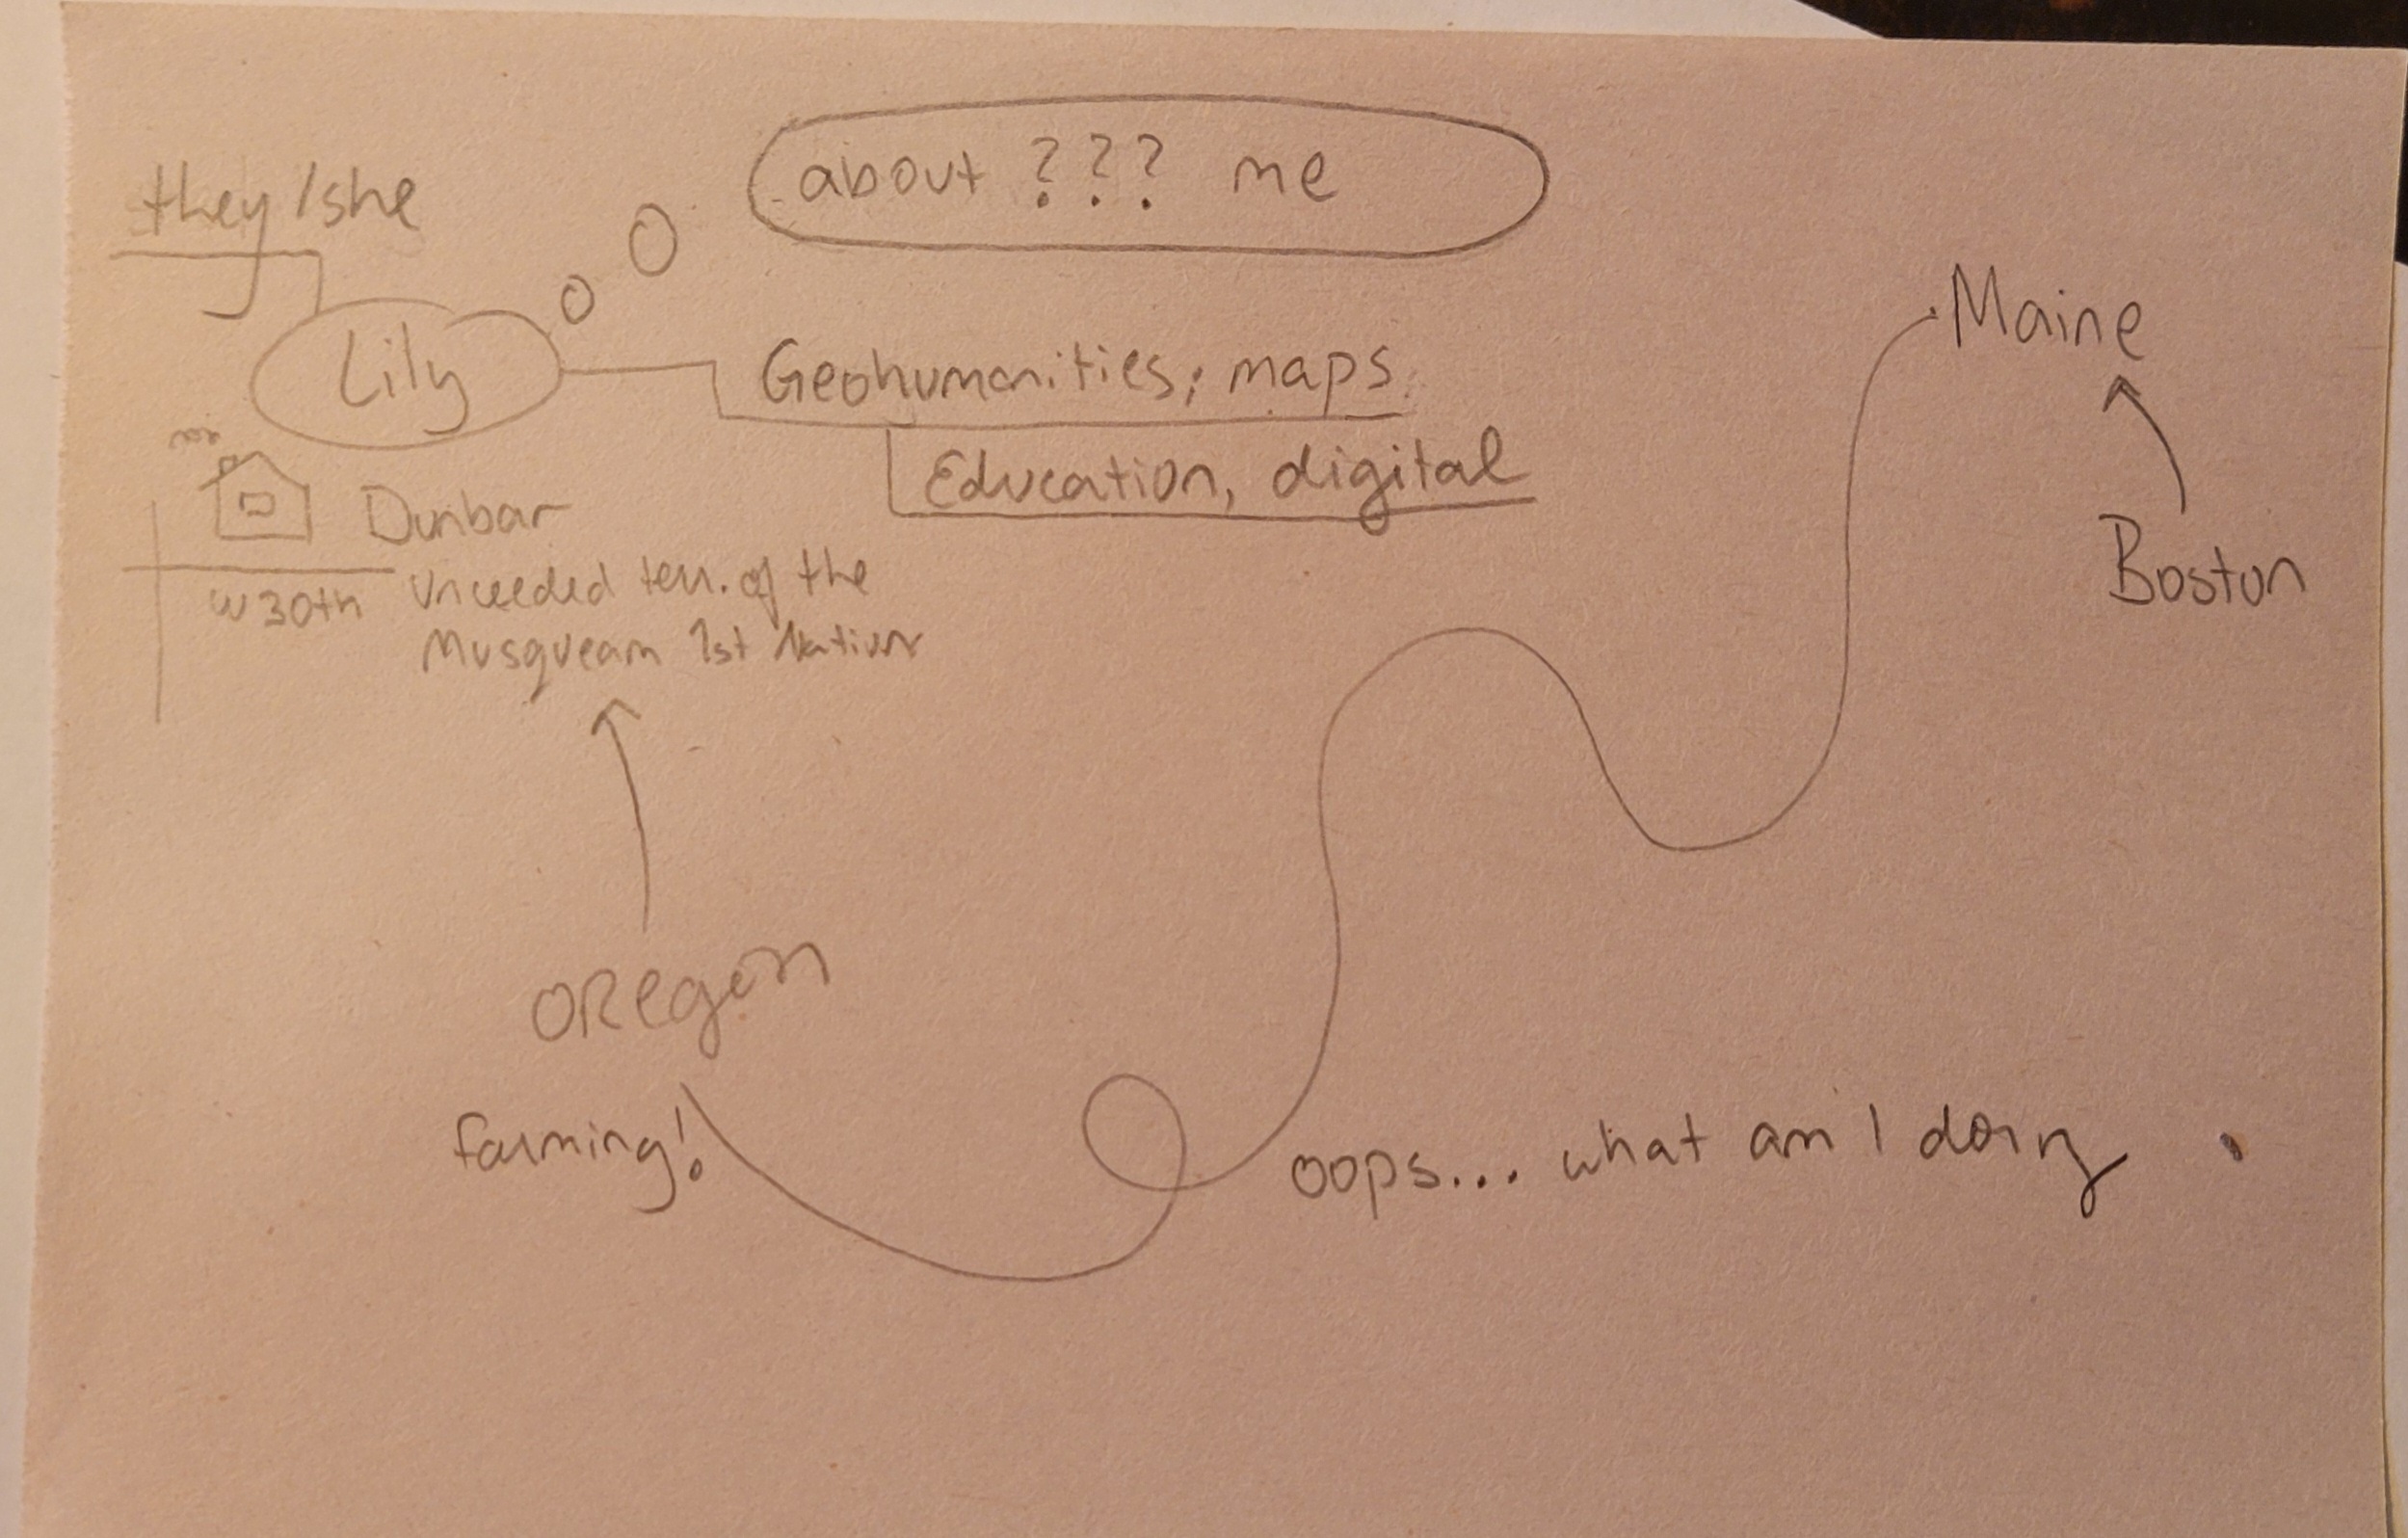 about ??? me
they/she
Lily
Geohumanities; maps
Education, digital
Dunbar
W 30th
Unceeded terr. of the
Musqueam 1st Nation
Maine
Boston
OREgon
farming!
oops... what am I doing